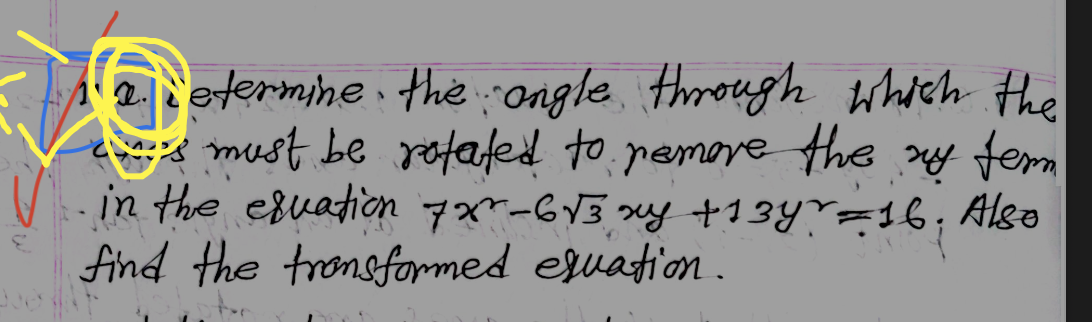 1. a. Determine the angle through which the
axes must be rotated to remove the xy term
in the equation 7x² - 6√3 xy + 13y² = 16. Also
find the transformed equation.